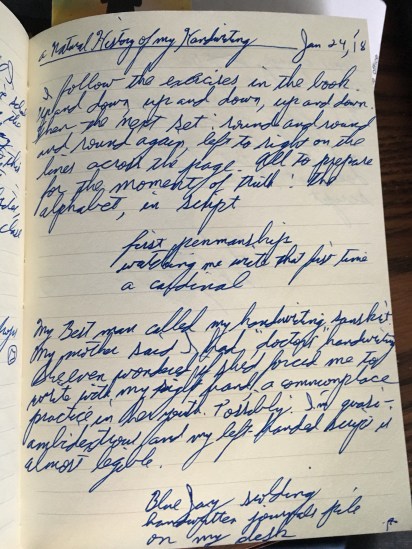 a Natural History of my Handwriting Jan 24, '18
I follow the exercises in the book.
Up and down, up and down, up and down.
Then the next set: round and round
and round again, left to right on the
lines across the page. All to prepare
for the moment of truth: the
alphabet, in script
first penmanship
watching me write that first time
a cardinal
My Best man called my handwriting sanskrit
My mother said I had "doctor's" handwriting
She even wondered if she'd forced me to
write with my right hand, a commonplace
practice in her youth. Possibly. I'm quasi-
ambidextrous and my left handed is
almost legible.
Blue Jay scolding
handwritten journals pile
on my desk